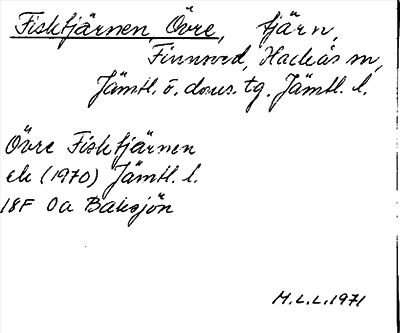 Fisktjärnen, Övre, tjärn,
Finnsved, Hackås sn,
Jämtl. ö. doms. tg. Jämtl. l.
Övre Fisktjärnen
ek (1970) Jämtl. l.
18F 0a Baksjön
M.L.L. 1971